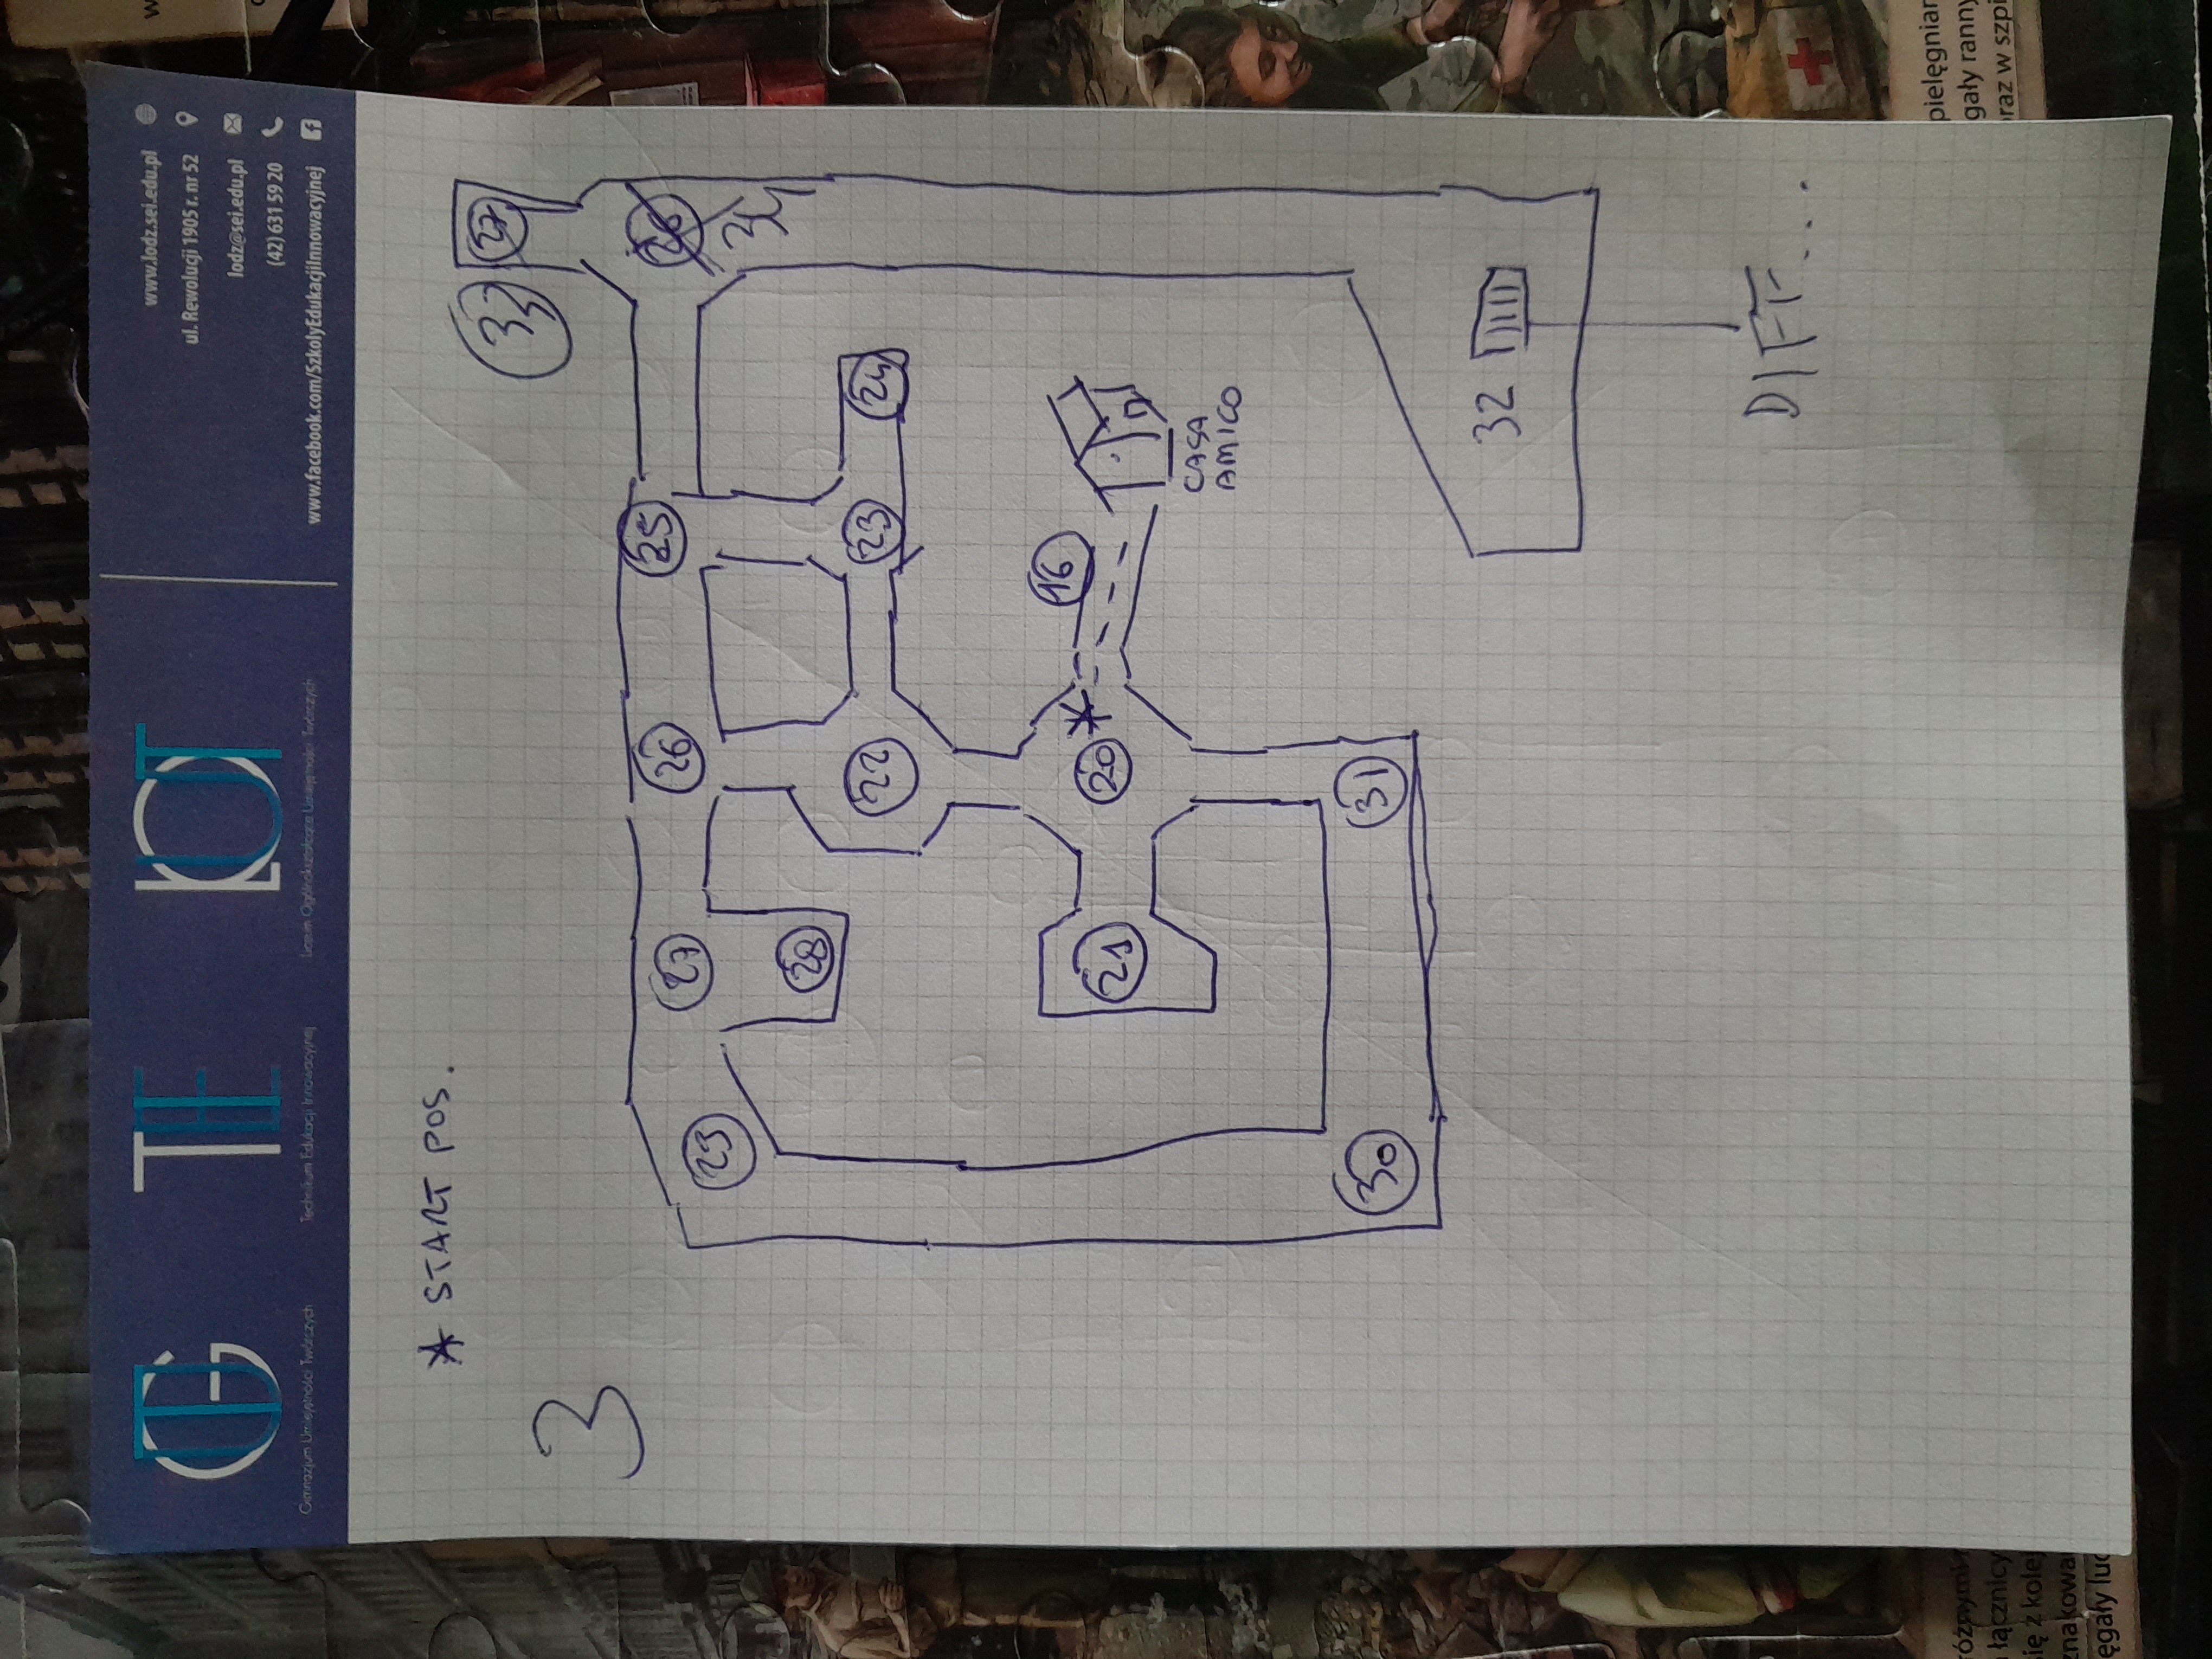 GUT
TEI
LOUT
Gimnazjum Umiejętności Twórczych
Technikum Edukacji Innowacyjnej
Liceum Ogólnokształcące Umiejętności Twórczych
www.lodz.sei.edu.pl
ul. Rewolucji 1905 r. nr 52
lodz@sei.edu.pl
(42) 631 59 20
www.facebook.com/SzkolyEdukacjiInnowacyjnej
* START POS.
3
33
27
23
27
26
25
26
34
28
22
23
24
16
21
20
*
CASA
AMICO
30
31
32
DIFF...
różnymi
łącznicy
się z kole
znakowa
ęgały luc
pielęgniar
gały ranny
oraz w szpi